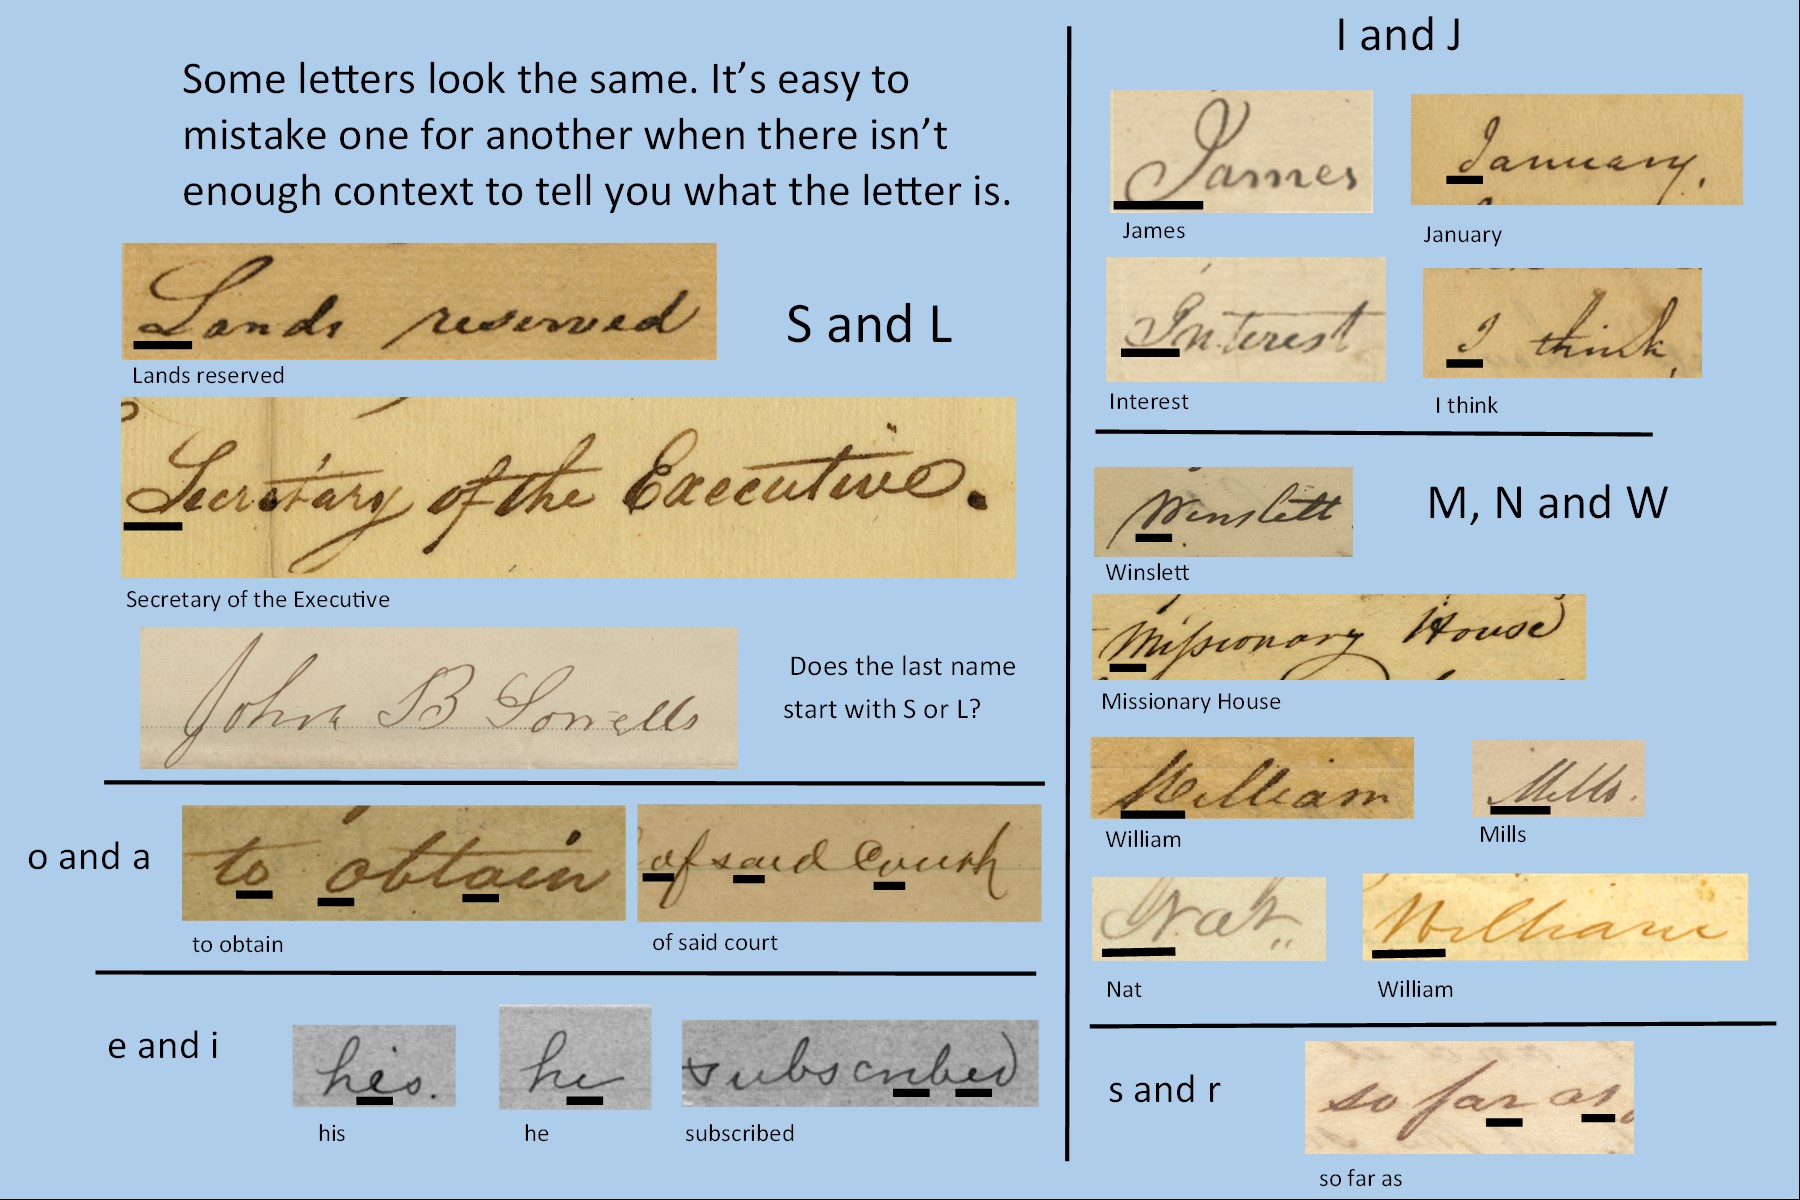 Some letters look the same. It’s easy to
mistake one for another when there isn’t
enough context to tell you what the letter is.
Lands reserved
S and L
Lands reserved
Secretary of the Executive.
Secretary of the Executive
John B
Does the last name
start with S or L?
o and a
to obtain
of said court
to obtain
of said court
e and i
his.
he
subscribed
his
he
subscribed
I and J
James
January.
James
January
Interest
I think,
Interest
I think
Winslett
M, N and W
Winslett
Missionary House
Missionary House
William
Mills.
William
Mills
Nat
William
Nat
William
s and r
so far as
so far as